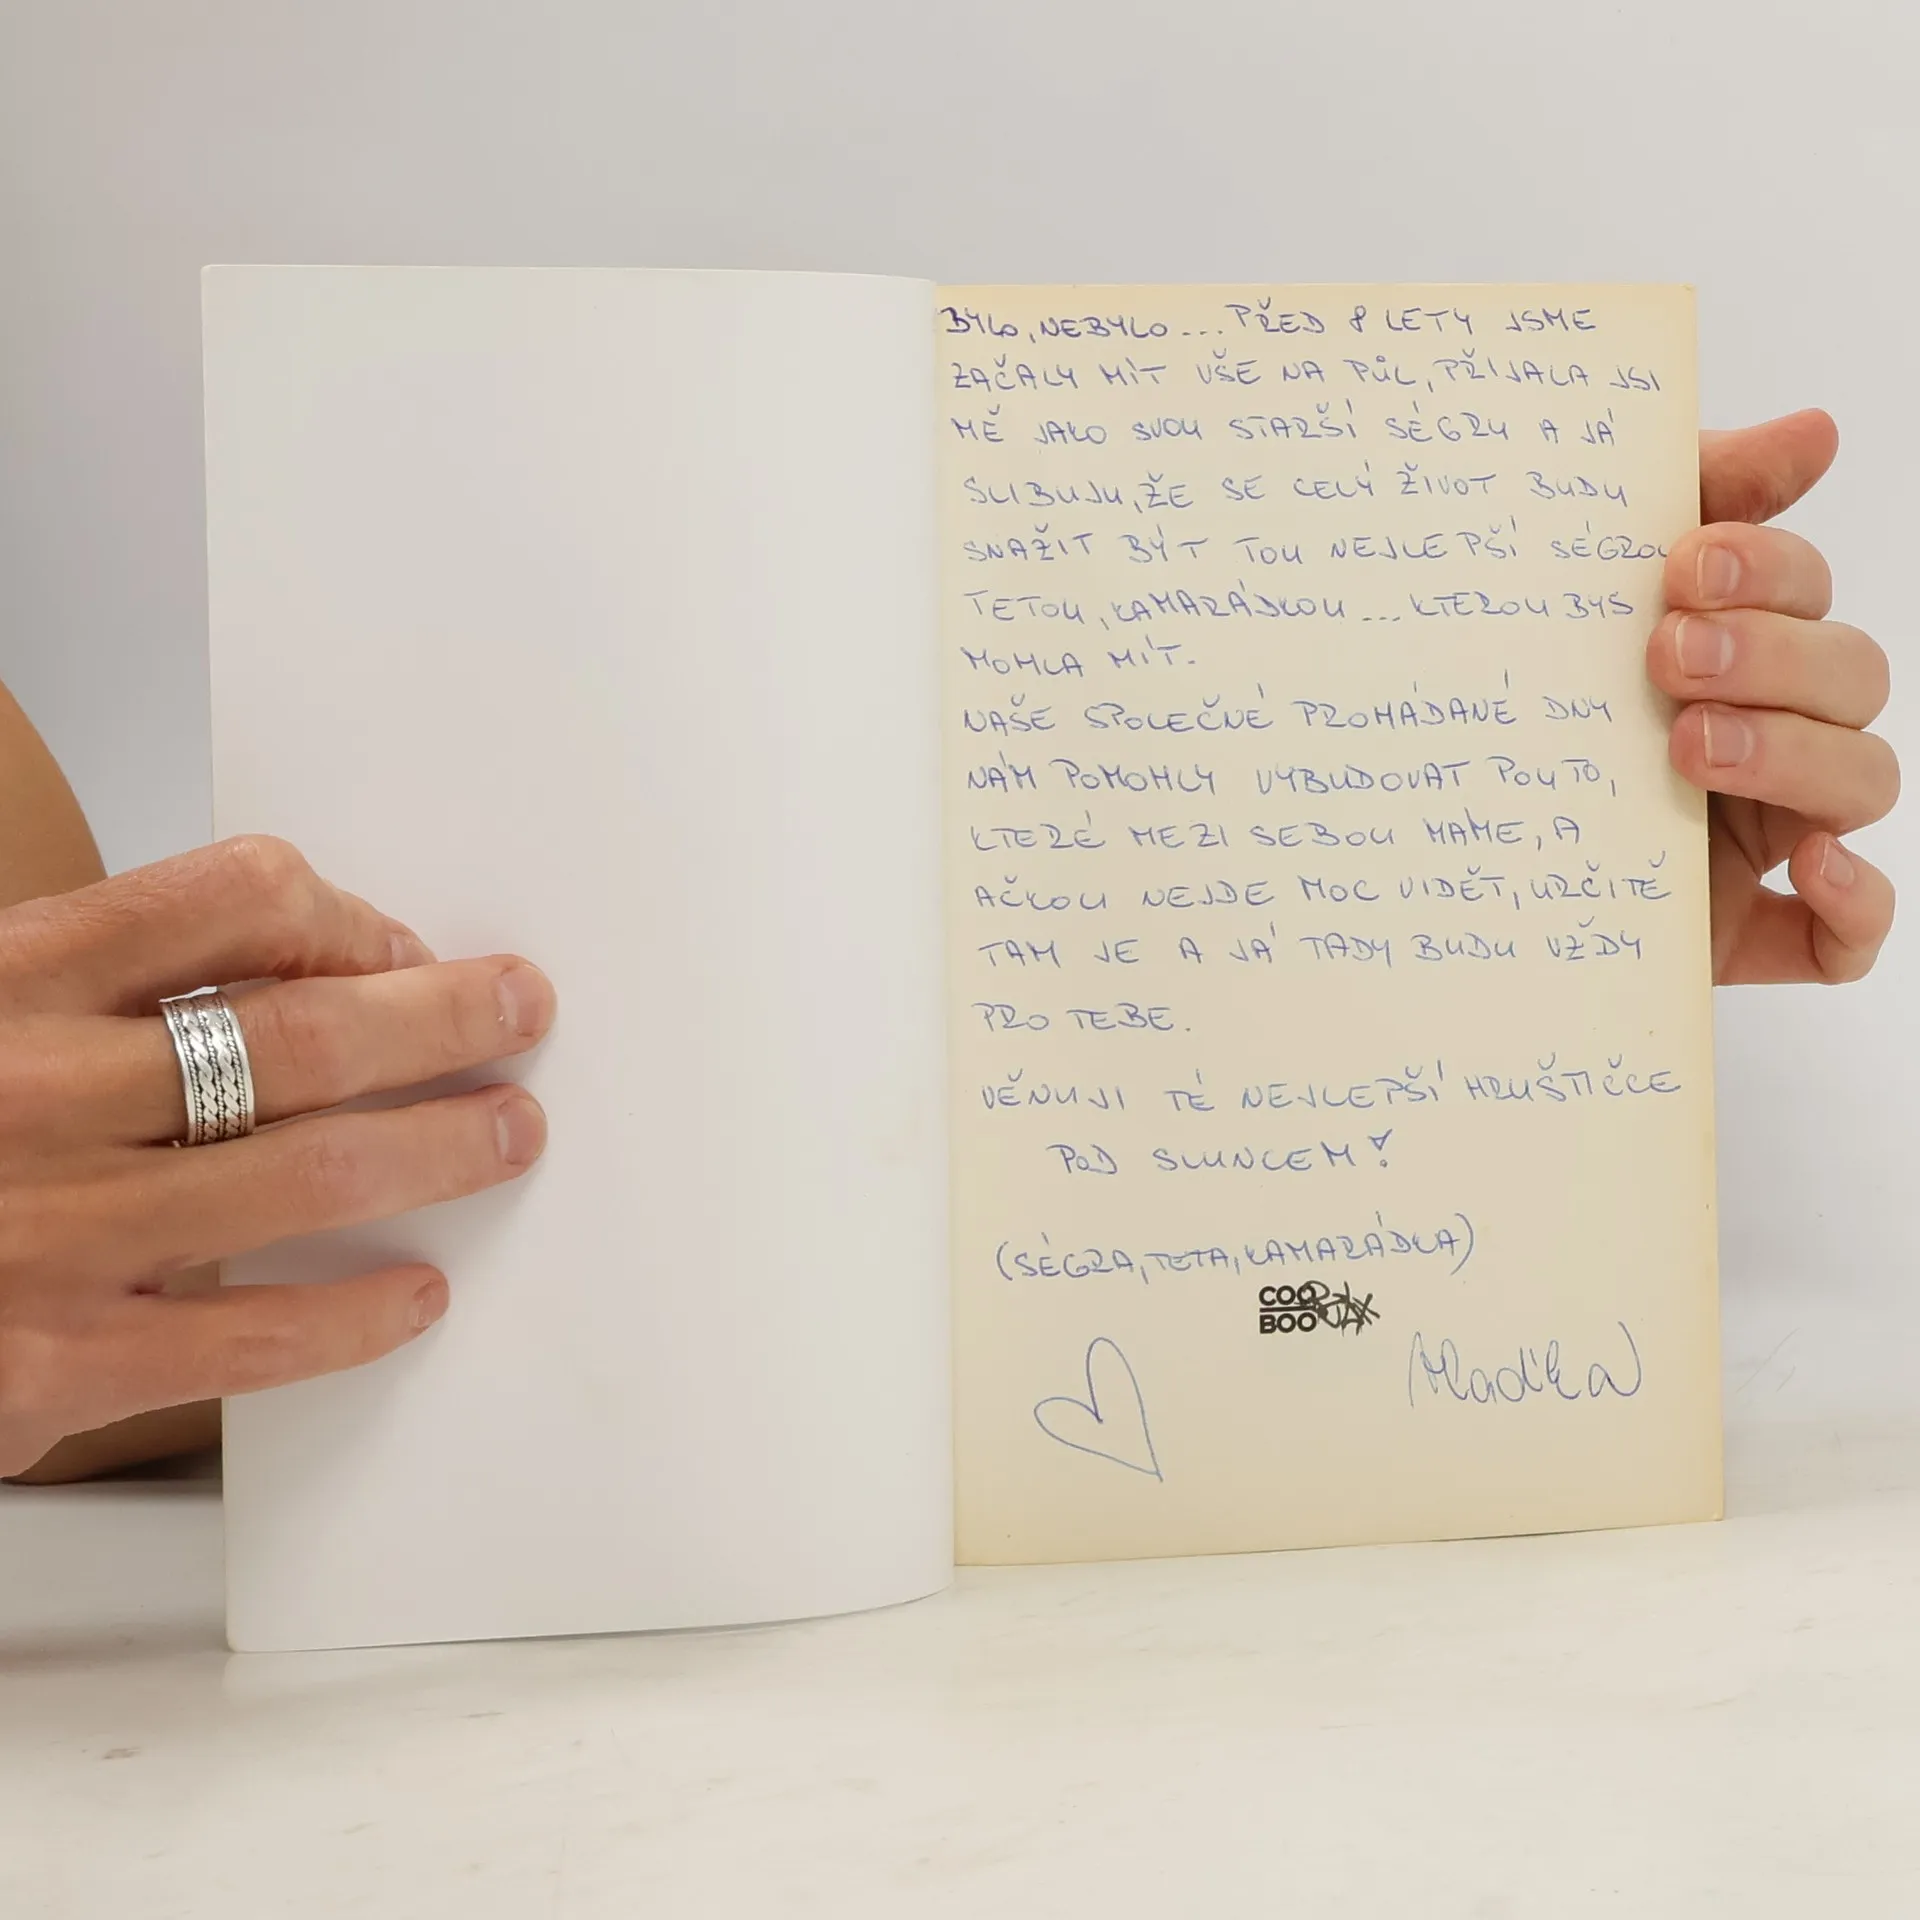 BYLO, NEBYLO... PŘED 8 LETY JSME
ZAČALY MÍT VŠE NA PŮL, PŘIJALA JSI
MĚ JAKO SVOU STARŠÍ SÉGRU A JÁ
SLIBUJU, ŽE SE CELÝ ŽIVOT BUDU
SNAŽIT BÝT TOU NEJLEPŠÍ SÉGROU
TETOU, KAMARÁDKOU... KTEROU BYS
MOHLA MÍT.
NAŠE SPOLEČNÉ PROHÁDANÉ DNY
NÁM POMOHLY VYBUDOVAT POUTO,
KTERÉ MEZI SEBOU MÁME, A
AČKOU NEJDE MOC VIDĚT, URČITĚ
TAM JE A JÁ TADY BUDU VŽDY
PRO TEBE.
VĚNUJI TÉ NEJLEPŠÍ HRUŠTIČCE
POD SLUNCEM!
(SÉGRA, TETA, KAMARÁDKA)
COO
BOO